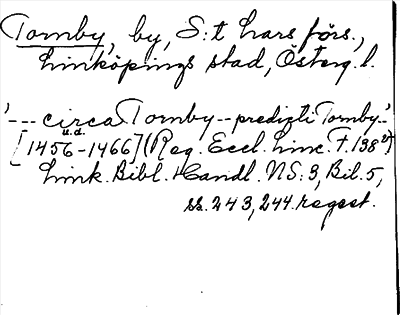 Tornby, by, S:t Lars förs.,
Linköpings stad, Österg. l.
'--- circa Tornby -- predigti Tornby.'
u.d.
[1456-1466] (Reg. Eccl. Linc. F. 138 v)
Link. Bibl. Handl. N S: 3, Bil. 5,
ss. 243, 244. regest.